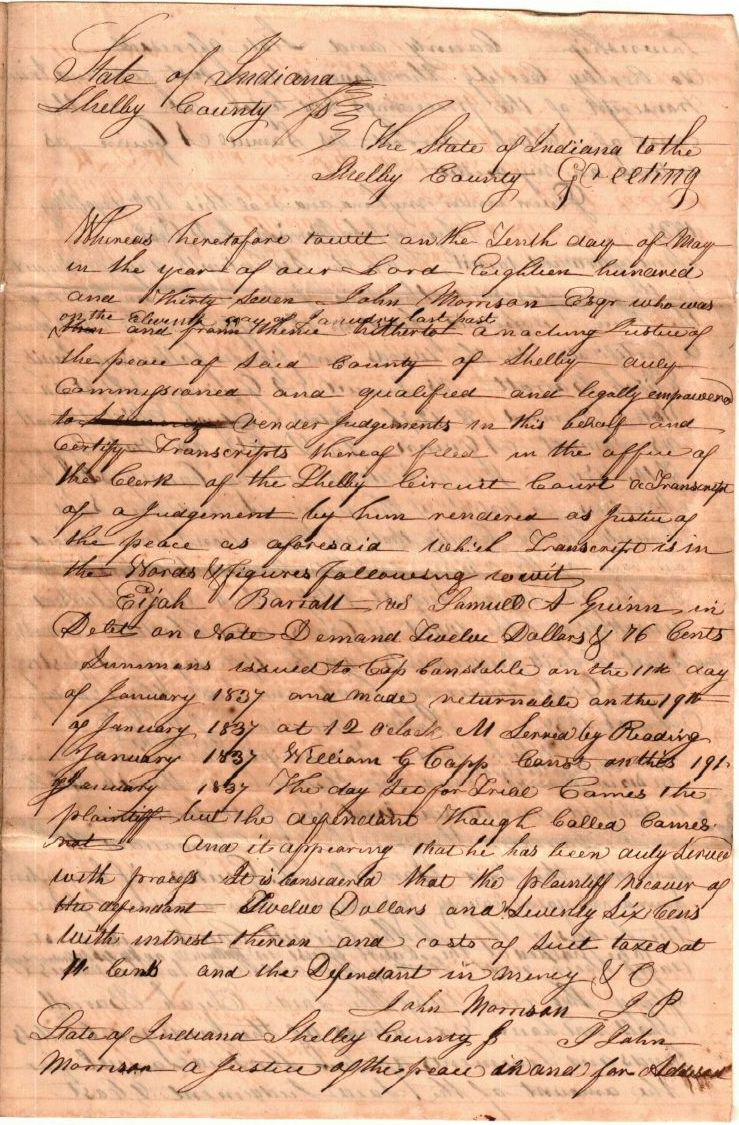 State of Indiana
Shelby County
The State of Indiana to the
Shelby County Greeting
Whereas heretofore towit on the Tenth day of May
in the year of our Lord Eighteen hundred
and Thirty Seven John Morrison Esqr who was
on the Eleventh day of January last past
and from thence hitherto an acting Justice of
the peace of Said County of Shelby duly
Commissioned and qualified and legally empowered
to render Judgements in this behalf and
Certify Transcripts thereof filed in the office of
the Clerk of the Shelby Circuit Court a Transcript
of a Judgement by him rendered as Justice of
the peace as aforesaid which Transcript is in
the Words & figures following towit
Eijah Barsatt vs Samuel A Guinn in
Debt on Note Demand Twelve Dollars & 76 Cents
Summans issued to Cap Constable on the 11th day
of January 1837 and made returnable on the 19th
of January 1837 at 12 Oclock M Served by Reading
January 1837 William G Capp Const on this 19th
January 1837 The day Set for Trial Cames the
plaintiff but the defendant Though Called Cames
not And it appearing that he has been duly Served
with process It is considered that the plaintiff recover of
the defendant Twelve Dollars and Seventy Six Cens
with intrest thereon and costs of Suet taxed at
Cents and the Defendant in mercy & C
John Morrison J P
State of Indiana Shelby County S I John
Morrison a Justice of the peace in and for Addison